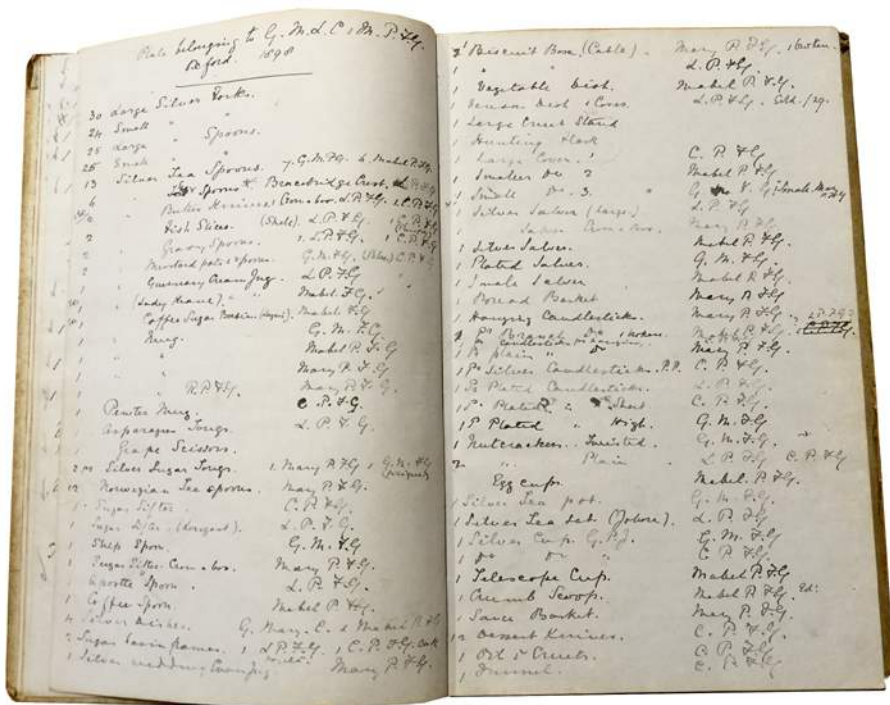 Plate belonging to G. M. L. C & M. P. FG.
Deford. 1898
30 Large Silver Forks.
24 Small " "
25 Large " Spoons.
25 Small " "
13 Silver Tea Spoons. 7. G.M.FG. 6 Mabel P. FG.
6 " Spoons Bracebridge Crest. L P FG
" Butter Knives, L. P. FG
Fish Slices. L. P. FG 1 C. P. FG
2 " Gravy Spoons. 1. L. P. FG. 1 C. P. FG
2 " Mustard pots & spoons. G. M. FG. C. P. FG
1 " Guernsey Cream Jug. L. P. FG.
1 " " " Mabel. FG.
1 " Coffee Sugar Basin. Mabel. FG
1 " Mug. G. M. FG
1 " " Mabel P. FG
1 " " Mary P. FG
1 " " R. P. FG. Mary P. FG.
1 Pewter Mug. C. P. FG.
1 Asparagus Tongs. L. P. FG.
1 Grape Scissors.
2 Silver Sugar Tongs. 1. Mary P. FG 1 G. M. FG
12 Norwegian Tea spoons. Mary P. FG.
1 Sugar Sifter. C. P. FG.
1 Sugar Sifter. L. P. FG.
1 Spoon. G. M. FG.
1 Sugar Sifter. Mary P. FG.
1 Spoon. L. P. FG.
1 Coffee Spoon Mabel P. FG.
4 Silver dishes. G. Mary. C. & Mabel P. FG
2 Sugar basin frames. 1 L P. FG. 1 C. P. FG.
1 Silver Cream Jug Mary P. FG.
Biscuit Box. Mary P. FG.
1 " " L. P. FG.
1 Vegetable Dish. Mabel P. FG.
1 Venison Dish & Cover. L. P. FG.
1 Large Cruet Stand
1 Hunting Flask
1 Large Cover. 1 C. P. FG
1 Smaller Do 2 Mabel P. FG
1 Small Do. 3.
1 Silver Salver (large) L. P. FG
1 " Salver Mary P. FG
1 Silver Salver. Mabel P. FG.
1 Plated Salver. G. M. FG.
1 Small Salver Mabel P. FG.
1 Bread Basket Mary P. FG
1 Hanging Candlesticks. Mary P. FG
Branch Do
1 Pr plain " Do Mary P. FG.
1 Pr Silver Candlesticks. P.P. C. P. FG.
1 Pr Plated Candlesticks. L. P. FG.
1 Pr Plated " Short C. P. FG.
1 Pr Plated " High. G. M. FG
1 Nutcrackers. Twisted G. M. FG.
2 " Plain L P FG C. P. FG
Egg cups. Mabel. P. FG.
1 Silver Tea pot. G. M. FG
1 Silver Tea set (Johore). L. P. FG
1 Silver Cup G. P. J. G. M. FG
1 Do Do " C P. FG
1 Telescope Cup. Mabel P. FG
1 Crumb Scoop. Mabel P. FG.
1 Basket. Mary P. FG.
12 Dessert Knives. C. P. FG.
1 Oil 5 Cruets. C. P. FG.
1 Funnel. C. P. FG.